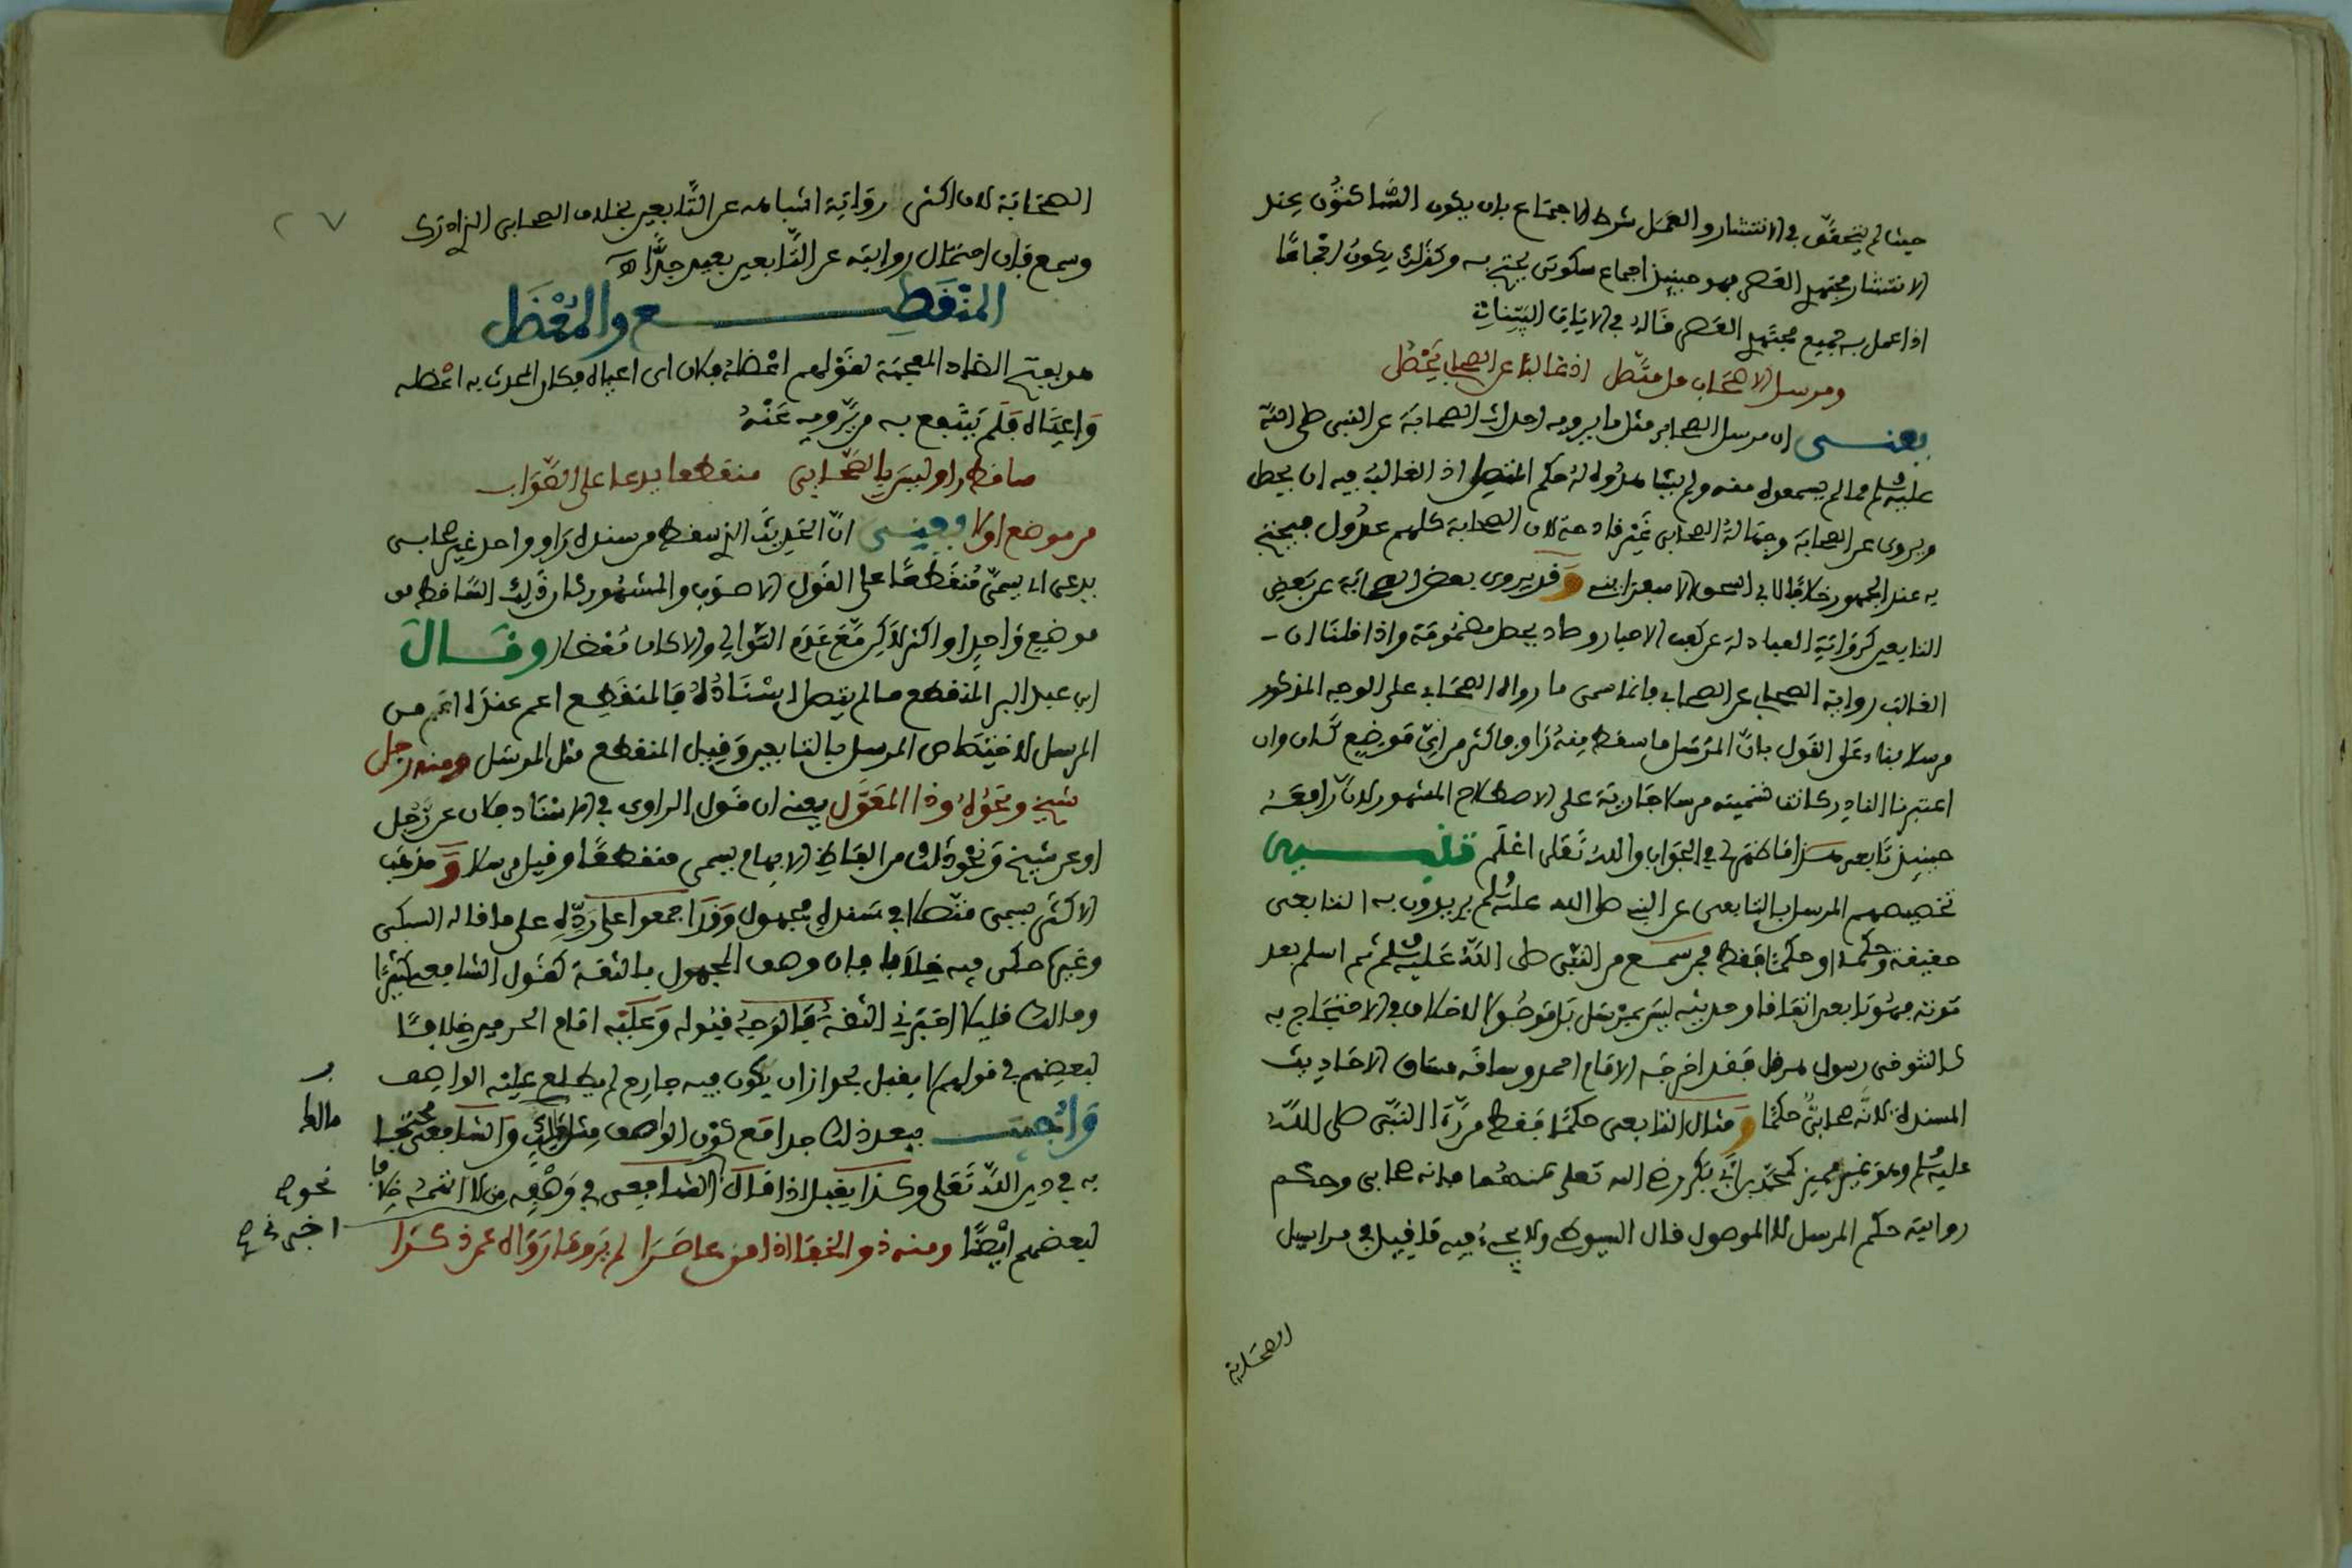 حيث لم يتحقق في الانتشار والعمل شرط الاجماع بان يكون الساكتون عند
الانتشار مجتهدي العصر فهو حينئذ اجماع سكوتي يحتج به وكذلك يكون اجماعا
اذا عمل به جميع مجتهدي العصر قاله في الايات البينات
ومرسل الاصحاب قل متصل اذ غالبا عن الصحاب يحصل
يعني ان مرسل الصحابي مثل ما يرويه احداث الصحابة عن النبي صلى الله
عليه وسلم مما لم يسمعوه منه ولم يشاهدوه له حكم المتصل اذ الغالب فيه ان يحصل
ويروى عن الصحابة وجهالة الصحابي غير قادحة لان الصحابة كلهم عدول فيحتج
به عند الجمهور خلافا لابي اسحاق الاسفرايني وقد يروي بعض الصحابة عن بعض
التابعين كرواية العبادلة عن كعب الاحبار وصاد يحصل مضمومة واذا قلنا ان
الغالب رواية الصحابي عن الصحابي فانما سمى ما رواه الصحابي على الوجه المذكور
مرسلا بناء على القول بان المرسل ما سقط منه راو فاكثر من اي موضع كان وان
اعتبرنا النادر كانت تسميته مرسلا جارية على الاصطلاح المشهور لان رافعه
حينئذ تابعي هذا ما ظهر لي في الجواب والله تعلى اعلم تنبيه
تخصيصهم المرسل بالتابعي عن النبي صلى الله عليه وسلم يريدون به التابعي
حقيقة وحكما او حكما فقط فمن سمع من النبي صلى الله عليه وسلم ثم اسلم بعد
موته فهو تابعي اتفاقا وحديثه ليس بمرسل بل موصول لا خلاف في الاحتجاج به
كالتنوخي رسول هرقل فقد اخرجه الامام احمد وساقه مساق الاحاديث
المسندة لانه صحابي حكما ومثال التابعي حكما فقط من رءا النبي صلى الله
عليه وسلم وهو غير مميز كمحمد بن ابي بكر رضي الله تعلى عنهما فانه صحابي وحكم
روايته حكم المرسل لا الموصول قال السيوطي ولا يجيء فيه ما قيل في مراسيل
الصحابة
٢٧
الصحابة لان اكثر رواية اشباهه عن التابعين بخلاف الصحابي الذي ادرك
وسمع فان احتمال روايته عن التابعين بعيد جدا اه
المنقطع والمعضل
هو بفتح الضاد المعجمة لقولهم اعضله فلان اي اعياه فكان المحدث به اعضله
واعياه فلم ينتفع به من يرويه عنه
ما فيه راو ليس بالصحابي منقطعا يدعا على الصواب
من موضع او لا ويعني ان الحديث الذي سقط من سنده راو واحد غير صحابي
يدعى اي يسمى منقطعا على القول الاصوب والمشهور كان ذلك الساقط من
موضع واحد او اكثر لكن مع عدم التوالي والا كان معضلا وقال
ابن عبد البر المنقطع ما لم يتصل اسناده فالمنقطع اعم عنده اعم من
المرسل لاختصاص المرسل بالتابعين وقيل المنقطع مثل المرسل ومنه رجل
شيخ ونحوه وذا المعول يعني ان قول الراوي في الاسناد فلان عن رجل
او عن شيخ ونحو ذلك من الفاظ الابهام يسمى منقطعا وقيل مرسلا ومذهب
الاكثر يسمى متصلا في سنده مجهول وقد اجمعوا على رده على ما قاله السبكي
وغيره حكى فيه خلافا فان وصف المجهول بالثقة كقول الشافعي كثيرا
ومالك قليلا اخبرني الثقة فالوجه قبوله وعليه امام الحرمين خلافا
لبعضهم في قولهم لا يقبل لجواز ان يكون فيه جارح لم يطلع عليه الواصف
واجيب ببعد ذلك جدا مع كون الواصف مثل مالك والشافعي محتجا
به في دين الله تعلى وكذا يقبل اذا قال الشافعي في وصفه من لا اتهمه خلافا
لبعضهم ايضا ومنه ذو الخفا اذا من عاصرا لم يرو ما رواه عمن ذكرا
مالك
نحو صح
اخبرني صح